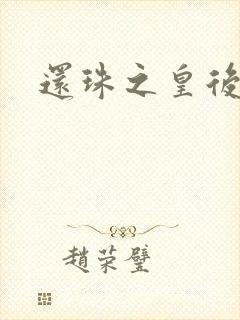 還珠之皇後
趙榮璧